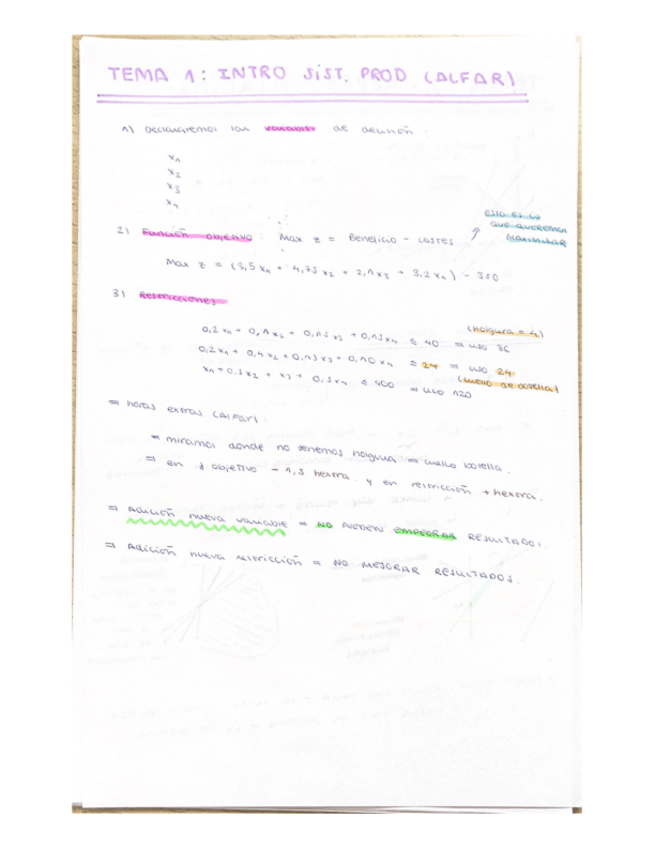 TEMA 1: INTRO SIST. PROD (ALFAR)
1) Declararemos las variables de decisión:
x1
x2
x3
x4
ESTO ES LO
QUE QUEREMOS
MAXIMIZAR
2) Función objetivo: Max z = Beneficio - costes
Max z = (3,5x1 + 4,75x2 + 2,1x3 + 3,2x4) - 350
3) Restricciones
(holgura = 4)
0,2x1 + 0,1x2 + 0,15x3 + 0,15x4 ≤ 40 = uso 36
0,2x1 + 0,4x2 + 0,15x3 + 0,10x4 ≤ 24 = uso 24
(cuello de botella)
x1 + 0,5x2 + x3 + 0,5x4 ≤ 400 = uso 120
⇒ horas extras (ALFAR):
⇒ miramos donde no tenemos holgura = cuello botella.
⇒ en f. objetivo - 1,5 hextra. y en restricción + hextra.
⇒ Adición nueva variable = NO PUEDEN EMPEORAR RESULTADOS.
⇒ Adición nueva restricción = NO MEJORAR RESULTADOS.